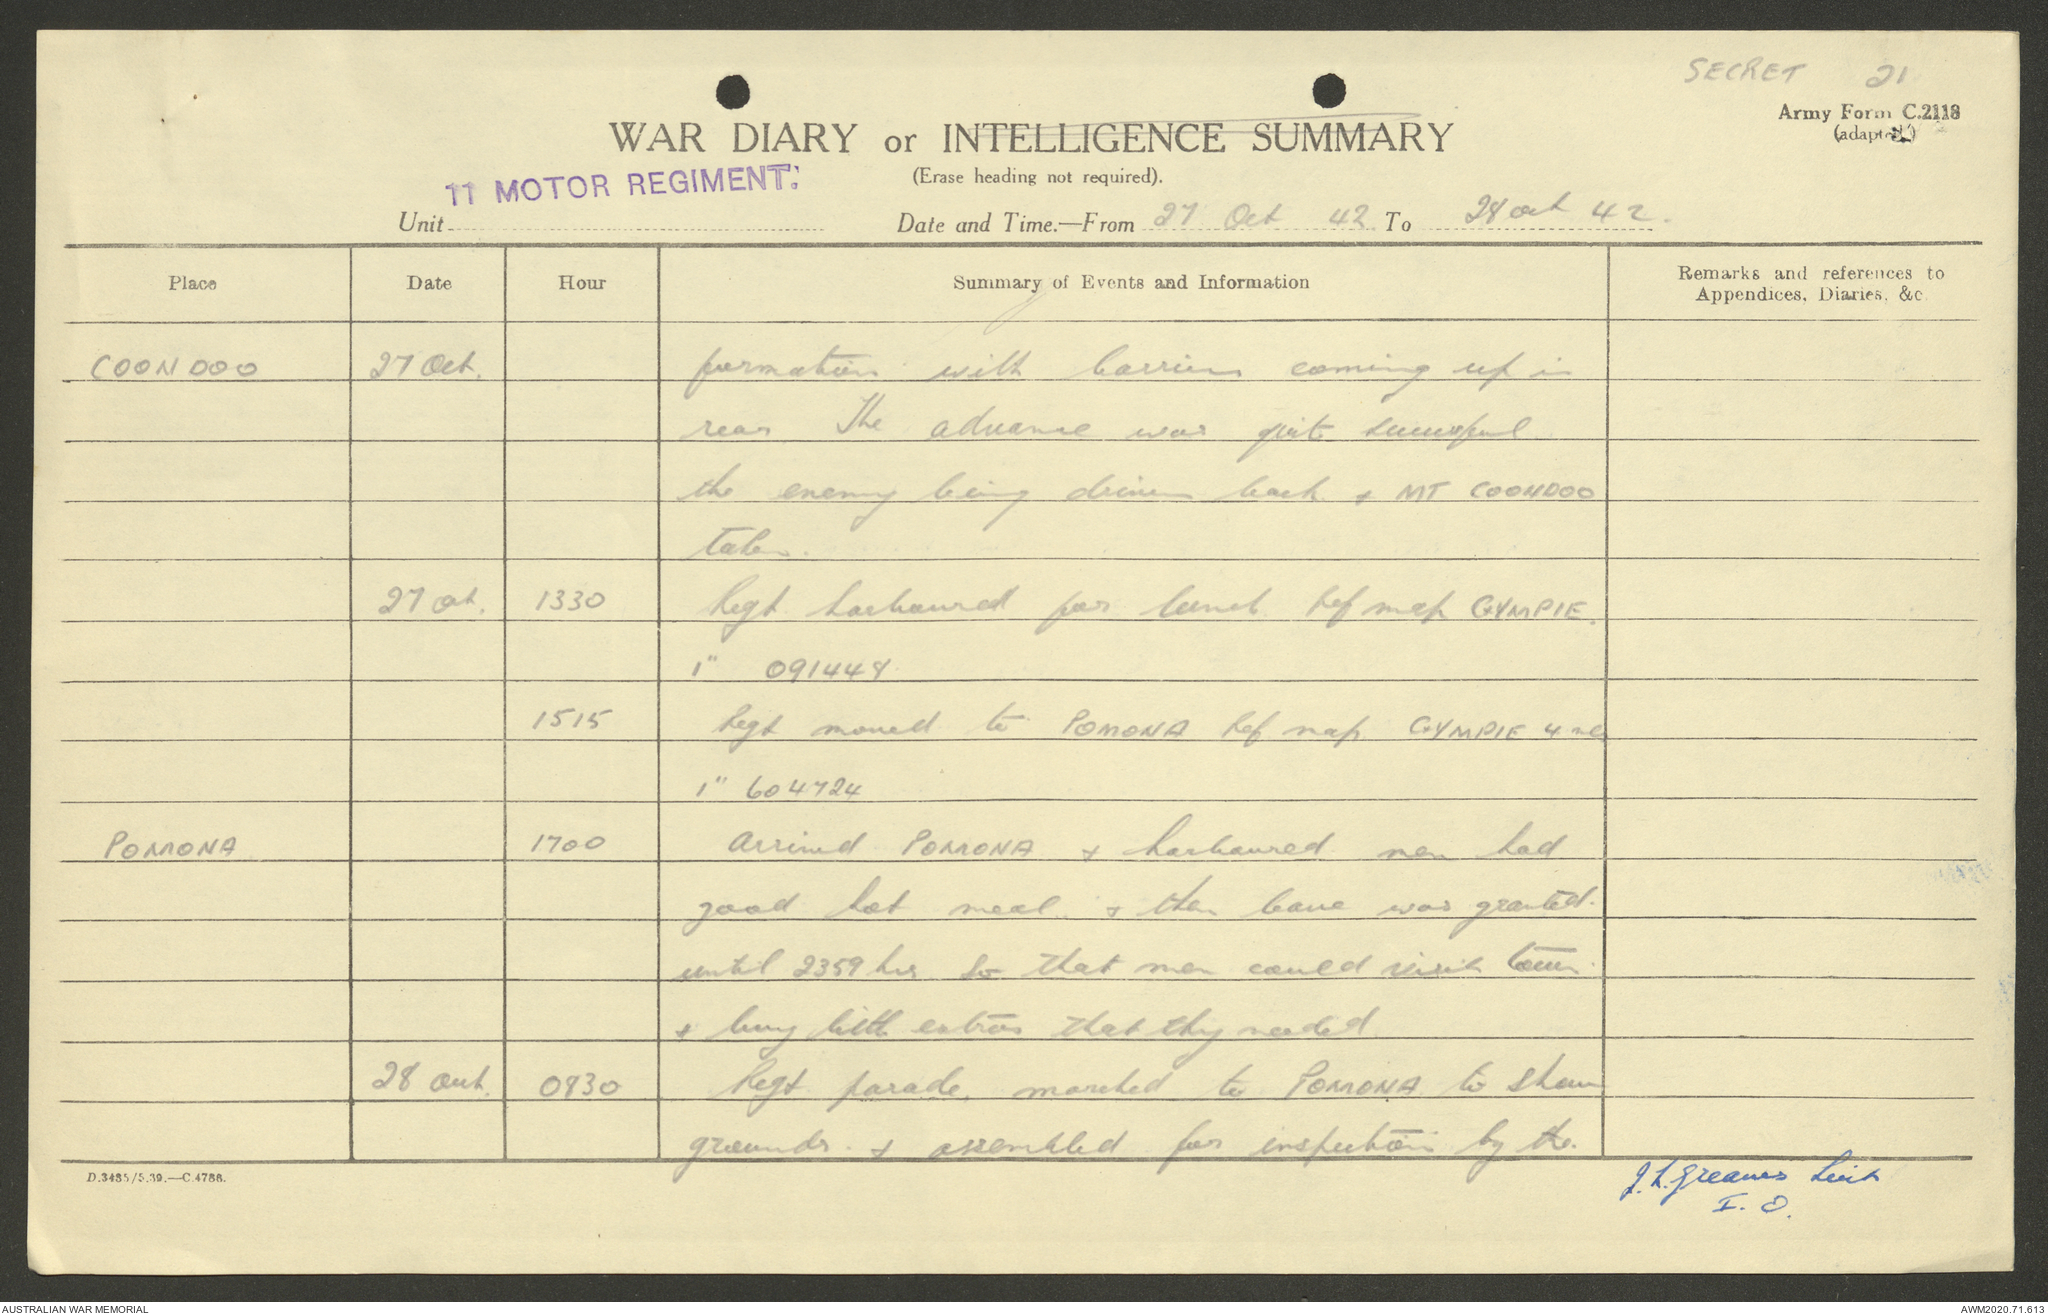 SECRET 21
Army Form C.2118
(adapted)
WAR DIARY or INTELLIGENCE SUMMARY
(Erase heading not required).
11 MOTOR REGIMENT.
Unit Date and Time.—From 27 Oct 42 To 28 oct 42.
Place Date Hour Summary of Events and Information Remarks and references to
Appendices, Diaries, &c.
COONDOO 27 Oct. formation with carriers coming up in
rear The advance was quite successful
the enemy being driven back & MT COONDOO
taken.
27 Oct. 1330 Regt harboured for lunch Ref map GYMPIE.
1" 091448
1515 Regt moved to POMONA Ref map GYMPIE 4 mls
1" 604724
POMONA 1700 Arrived POMONA & harboured men had
good hot meal & then leave was granted
until 2359 hrs so that men could visit town
& buy little extras that they needed
28 Oct. 0830 Regt parade, marched to POMONA to show
grounds & assembled for inspection by the
D.3485/5.39.—C.4788.
J.L. Greaves Lieut
I.O.
AUSTRALIAN WAR MEMORIAL AWM2020.71.613